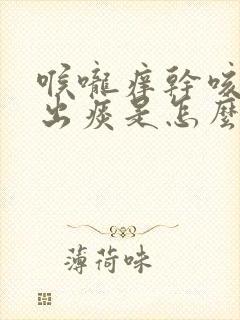 喉嚨癢幹咳
出痰是怎麼
薄荷味